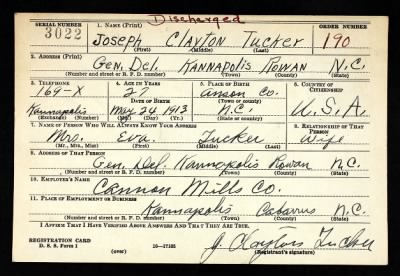 Discharged
SERIAL NUMBER 1. NAME (Print) ORDER NUMBER
3022 JOSEPH CLAYTON TUCKER 190
(First) (Middle) (Last)
2. ADDRESS (Print)
Gen. Del. KANNAPOLIS ROWAN N.C.
(Number and street or R. F. D. number) (Town) (County) (State)
3. TELEPHONE 4. AGE IN YEARS 5. PLACE OF BIRTH 6. COUNTRY OF CITIZENSHIP
169-X 27 Anson Co.
DATE OF BIRTH (Town or county)
Kannapolis May 24 1913 N.C. U.S.A.
(Exchange) (Number) (Mo.) (Day) (Yr.) (State or country)
7. NAME OF PERSON WHO WILL ALWAYS KNOW YOUR ADDRESS 8. RELATIONSHIP OF THAT PERSON
Mrs. Eva Tucker Wife
(Mr., Mrs., Miss) (First) (Middle) (Last)
9. ADDRESS OF THAT PERSON
Gen. Del. Kannapolis Rowan N.C.
(Number and street or R. F. D. number) (Town) (County) (State)
10. EMPLOYER'S NAME
Cannon Mills Co.
11. PLACE OF EMPLOYMENT OR BUSINESS
Kannapolis Cabarrus N.C.
(Number and street or R. F. D. number) (Town) (County) (State)
I AFFIRM THAT I HAVE VERIFIED ABOVE ANSWERS AND THAT THEY ARE TRUE.
REGISTRATION CARD
D. S. S. Form 1 (over) 16-17105 J. Clayton Tucker
(Registrant's signature)